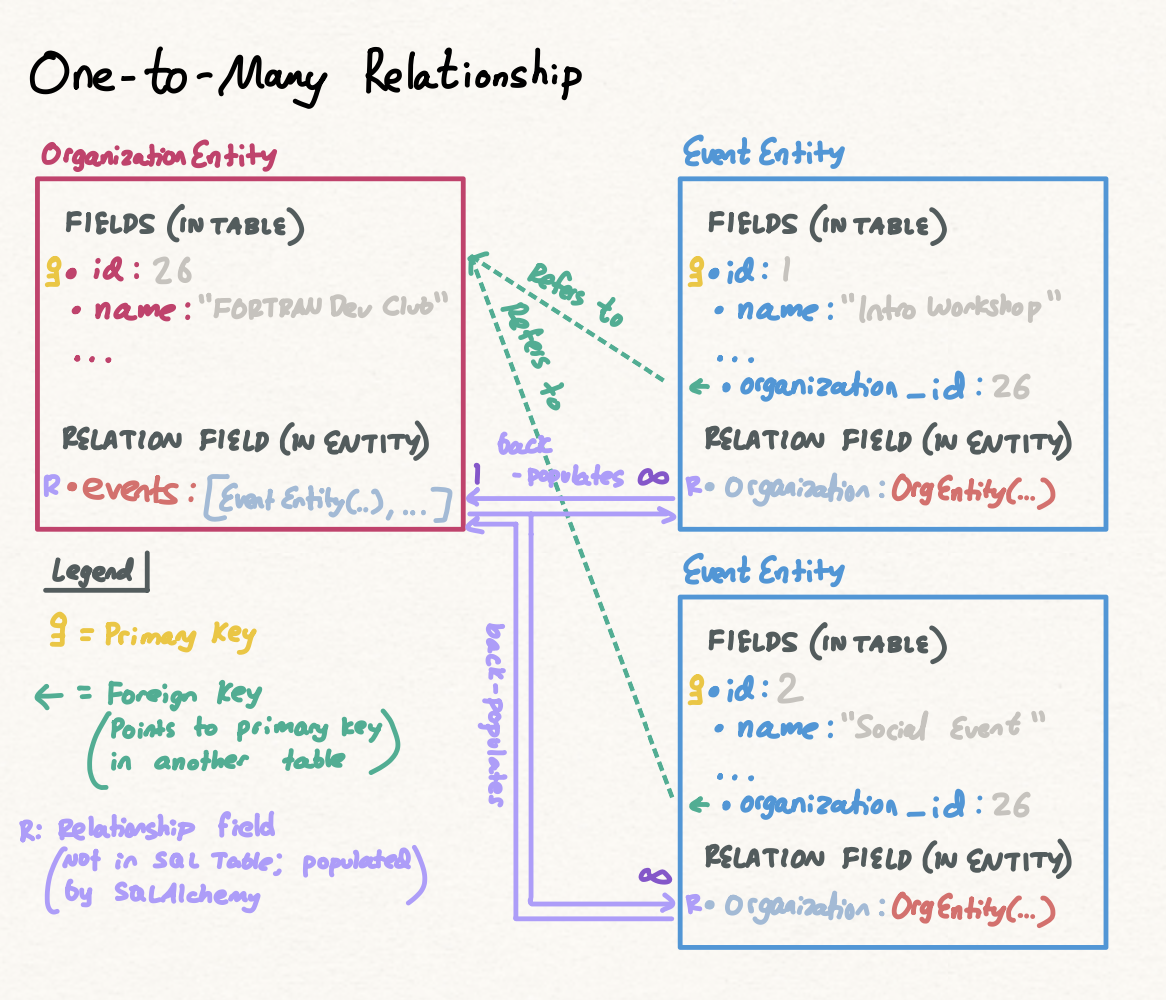 One-to-Many Relationship
Organization Entity
FIELDS (IN TABLE)
• id: 26
• name: "FORTRAN Dev Club"
...
RELATION FIELD (IN ENTITY)
R • events: [Event Entity(..), ...]
Refers to
Refers to
back
-populates
1
∞
back-populates
∞
Event Entity
FIELDS (IN TABLE)
• id: 1
• name: "Intro Workshop"
...
← • organization_id: 26
RELATION FIELD (IN ENTITY)
R • Organization: OrgEntity(...)
Event Entity
FIELDS (IN TABLE)
• id: 2
• name: "Social Event"
...
← • organization_id: 26
RELATION FIELD (IN ENTITY)
R • Organization: OrgEntity(...)
Legend
= Primary Key
← = Foreign Key
(Points to primary key
in another table)
R: Relationship field
(Not in SQL Table; populated
by SQLAlchemy)